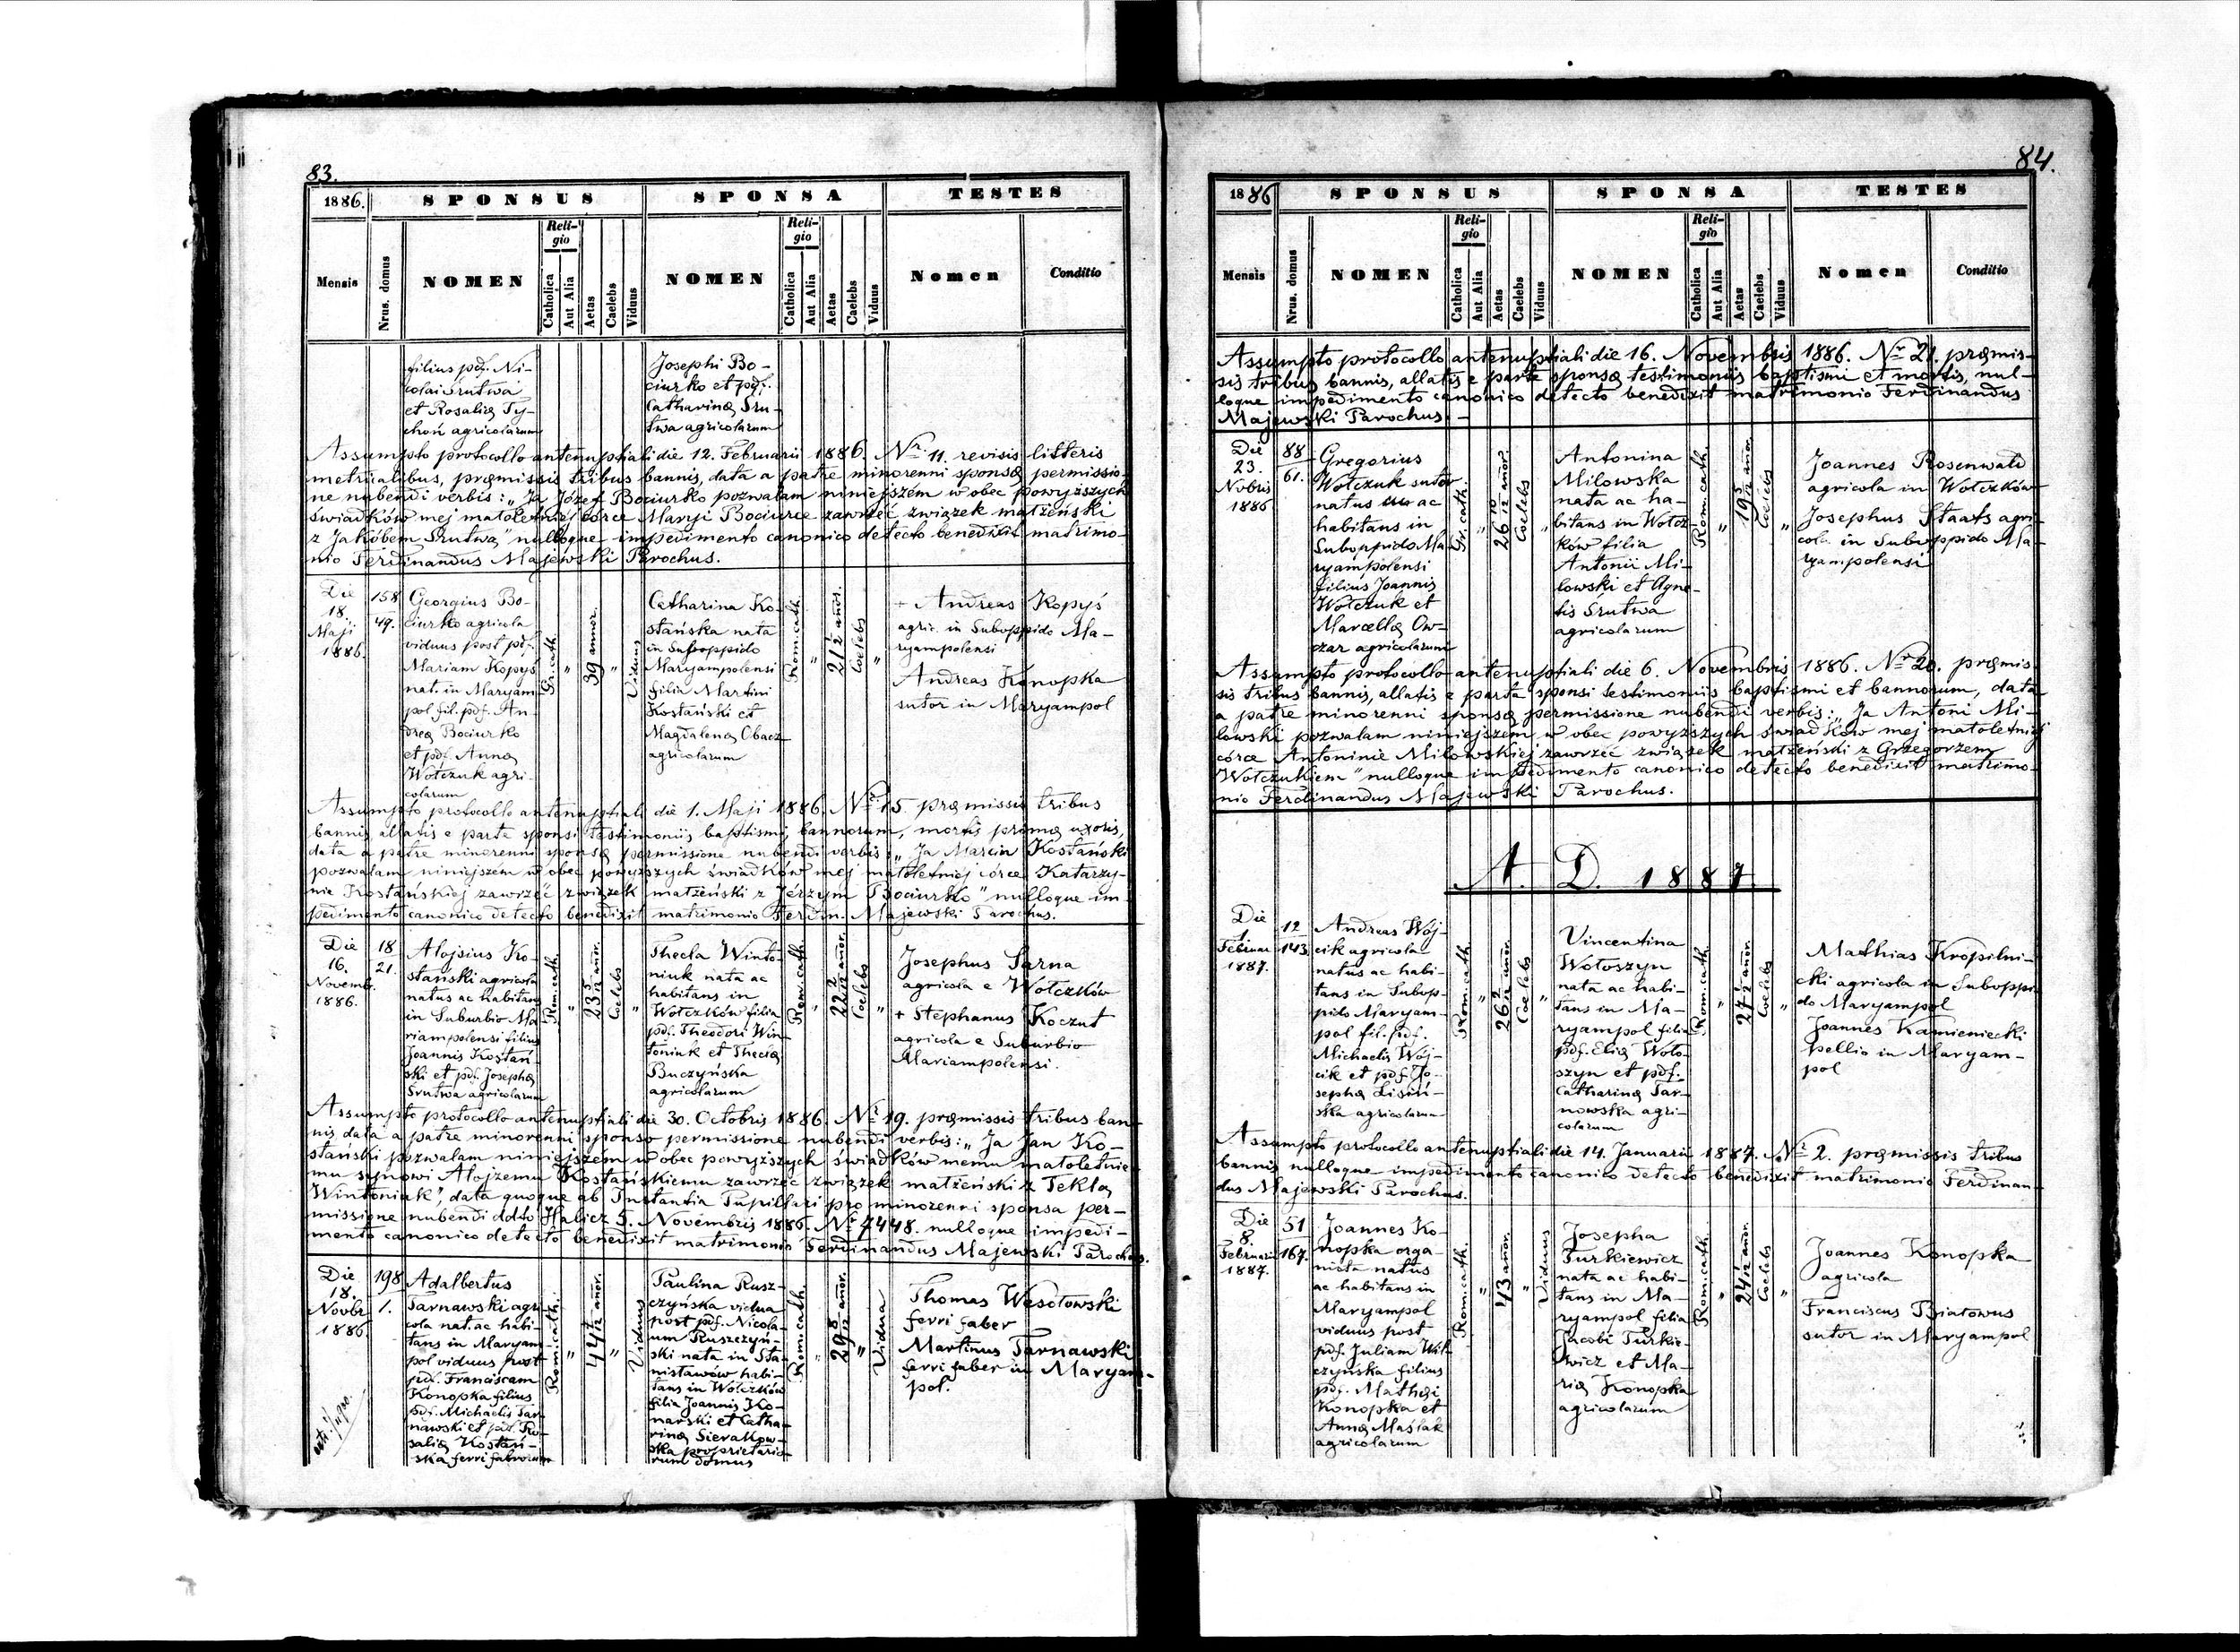 83.
1886.
SPONSUS
SPONSA
TESTES
Mensis
Nrus. domus
NOMEN
Religio
Catholica
Aut Alia
Aetas
Caelebs
Viduus
NOMEN
Religio
Catholica
Aut Alia
Aetas
Caelebs
Viduus
Nomen
Conditio
filius pdf. Ni-
colai Srutwa
et Rosaliæ Ty-
choń agricolarum
Josephi Bo-
ciurko et pdf.
Catharinæ Sru-
twa agricolarum
Assumpto protocollo antenuptiali die 12. Februarii 1886. Nr. 11. revisis litteris
metricalibus, præmissis tribus bannis, data a patre minorenni sponsæ permissio-
ne nubendi verbis: „Ja Józef Bociurko pozwalam niniejszém w obec powyższych
świadków mej małoletniéj córce Maryi Bociurce zawrzéć związek małżeński
z Jakóbem Srutwą" nulloque impedimento canonico detecto benedixit matrimo-
nio Ferdinandus Majewski Parochus.
Die
18.
Maji
1886.
158
49.
Georgius Bo-
ciurko agricola
viduus post pdf.
Mariam Kopyś
nat. in Maryam-
pol fil. pdf. An-
dreæ Bociurko
et pdf. Annæ
Wołczuk agri-
colarum
Gr. cath.
„
39 annor.
„
Viduus
Catharina Ko-
stańska nata
in Suboppido
Maryampolensi
filia Martini
Kostański et
Magdalenæ Obacz
agricolarum
Rom. cath.
„
21 1/2 añor.
Coelebs
„
+ Andreas Kopyś
agric. in Suboppido Ma-
ryampolensi
Andreas Konopka
sutor in Maryampol
Assumpto protocollo antenuptiali die 1. Maji 1886. Nr. 15. præmissis tribus
bannis allatis e parte sponsi testimoniis baptismi, bannorum, mortis primæ uxoris,
data a patre minorenni sponsæ permissione nubendi verbis: „Ja Marcin Kostański
pozwalam niniejszem w obec powyższych świadków mej małoletniej córce Katarzy-
nie Kostańskiej zawrzéć związek małżeński z Jérzym Bociurko" nulloque im-
pedimento canonico detecto benedixit matrimonio Ferdin. Majewski Parochus.
Die
16.
Novemb.
1886.
18
21.
Alojsius Ko-
stański agricola
natus ac habitans
in Suburbio Ma-
riampolensi filius
Joannis Kostań-
ski et pdf. Josephæ
Srutwa agricolarum
Rom. cath.
„
23 5/12 añor.
Coelebs
„
Thecla Winto-
niuk nata ac
habitans in
Wołczków filia
pdf. Theodori Win-
toniuk et Theclæ
Buczyńska
agricolarum
Rom. cath.
„
22 2/12 añor.
Coelebs
„
Josephus Sarna
agricola e Wołczków
+ Stephanus Koczut
agricola e Suburbio
Mariampolensi.
Assumpto protocollo antenuptiali die 30. Octobris 1886. Nr. 19. præmissis tribus ban-
nis, data a patre minorenni sponso permissione nubendi verbis: „Ja Jan Ko-
stański pozwalam niniejszém w obec powyższych świadków memu małoletnie-
mu synowi Alojzemu Kostańskiemu zawrzéć związek małżeński z Teklą
Wintoniak", data quoque ab Instantia Pupillari pro minorenni sponsa per-
missione nubendi ddto Halicz 5. Novembris 1886. Nr. 7448. nulloque impedi-
mento canonico detecto benedixit matrimonio Ferdinandus Majewski Parochus.
Die
18.
Novbr.
1886.
198
1.
Adalbertus
Tarnawski agri-
cola nat. ac habi-
tans in Maryam-
pol viduus post
pdf. Franciscam
Konopka filius
pdf. Michaelis Tar-
nawski et pdf. Ro-
saliæ Kostań-
ska ferri fabrorum
Rom. cath.
„
44 7/12 añor.
„
Viduus
Paulina Rusz-
czyńska vidua
post pdf. Nicola-
um Ruszczyń-
ski nata in Sta-
nisławów habi-
tans in Wołczków
filia Joannis Ko-
narski et Catha-
rinæ Sierakow-
ska proprietario-
rum domus
Rom. cath.
„
29 8/12 añor.
„
Vidua
Thomas Wesołowski
ferri faber
Martinus Tarnawski
ferri faber in Maryam-
pol.
84.
1886
SPONSUS
SPONSA
TESTES
Mensis
Nrus. domus
NOMEN
Religio
Catholica
Aut Alia
Aetas
Caelebs
Viduus
NOMEN
Religio
Catholica
Aut Alia
Aetas
Caelebs
Viduus
Nomen
Conditio
Assumpto protocollo antenuptiali die 16. Novembris 1886. Nr. 21. præmis-
sis tribus bannis, allatis e parte sponsæ testimoniis baptismi et mortis, nul-
loque impedimento canonico detecto benedixit matrimonio Ferdinandus
Majewski Parochus.-
Die
23.
Nobris
1886
88
61.
Gregorius
Wołczuk sutor
natus ac
habitans in
Suboppido Ma-
ryampolensi
filius Joannis
Wołczuk et
Marcellæ Ow-
czar agricolarum
Gr. cath.
„
26 10/12 añor.
Coelebs
„
Antonina
Milowska
nata ac ha-
bitans in Wołcz-
ków filia
Antonii Mi-
lowski et Agne-
tis Srutwa
agricolarum
Rom. cath.
„
19 5/12 añor.
Coelebs
„
Joannes Rosenwald
agricola in Wołczków
Josephus Staats agri-
cola in Suboppido Ma-
ryampolensi
Assumpto protocollo antenuptiali die 6. Novembris 1886. Nr. 20. præmis-
sis tribus bannis, allatis e parte sponsi testimoniis baptismi et bannorum, data
a patre minorenni sponsæ permissione nubendi verbis: „Ja Antoni Mi-
lowski pozwalam niniejszém w obec powyższych świadków mej małoletniéj
córce Antoninie Milowskiej zawrzéć związek małżeński z Grzegorzem
Wołczukiem" nulloque impedimento canonico detecto benedixit matrimo-
nio Ferdinandus Majewski Parochus.
A. D. 1887
Die
1.
Februar.
1887.
12
143
Andreas Wój-
cik agricola
natus ac habi-
tans in Subop-
pido Maryam-
pol fil. pdf.
Michaelis Wój-
cik et pdf. Jo-
sephæ Lisiń-
ska agricolarum
Rom. cath.
„
26 2/12 añor.
Coelebs
„
Vincentina
Wołoszyn
nata ac habi-
tans in Ma-
ryampol filia
pdf. Eliæ Woło-
szyn et pdf.
Catharinæ Tar-
nowska agri-
colarum
Rom. cath.
„
27 1/12 añor.
Coelebs
„
Mathias Kropilni-
cki agricola in Suboppi-
do Maryampol
Joannes Kamieniecki
pellio in Maryam-
pol
Assumpto protocollo antenuptiali die 14. Januarii 1887. Nr. 2. præmissis tribus
bannis nulloque impedimento canonico detecto benedixit matrimonio Ferdinan-
dus Majewski Parochus.
Die
8.
Februarii
1887.
51
167.
Joannes Ko-
nopka orga-
nista natus
ac habitans in
Maryampol
viduus post
pdf. Juliam Wil-
czyńska filius
pdf. Mathæi
Konopka et
Annæ Maślak
agricolarum
Rom. cath.
„
43 añor.
„
Viduus
Josepha
Turkiewicz
nata ac habi-
tans in Ma-
ryampol filia
Jacobi Turkie-
wicz et Ma-
riæ Konopka
agricolarum
Rom. cath.
„
24 1/12 añor.
Coelebs
„
Joannes Konopka
agricola
Franciscus Białowus
sutor in Maryampol